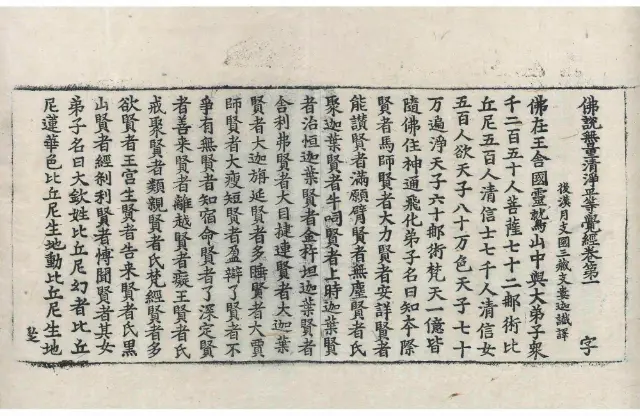 佛說無量清淨平等覺經卷第一 字
後漢月支國三藏支婁迦讖譯
佛在王舍國靈鷲山中與大弟子衆
千二百五十人菩薩七十二那術比
丘尼五百人清信士七千人清信女
五百人欲天子八十万色天子七十
万遍淨天子六十那術梵天一億皆
隨佛住神通飛化弟子名曰知本際
賢者馬師賢者大力賢者安詳賢者
能讚賢者滿願臂賢者無塵賢者氏
聚迦葉賢者牛呞賢者上時迦葉賢
者治恒迦葉賢者金杵坦迦葉賢者
舍利弗賢者大目揵連賢者大迦葉
賢者大迦旃延賢者多睡賢者大賈
師賢者大瘦短賢者盈辯了賢者不
爭有無賢者知宿命賢者了深定賢
者善来賢者離越賢者癡王賢者氏
戒聚賢者類親賢者氏梵經賢者多
欲賢者王宮生賢者告来賢者氏黑
山賢者經刹利賢者博聞賢者其女
弟子名曰大欽姓比丘尼幻者比丘
尼蓮華色比丘尼生地動比丘尼生地